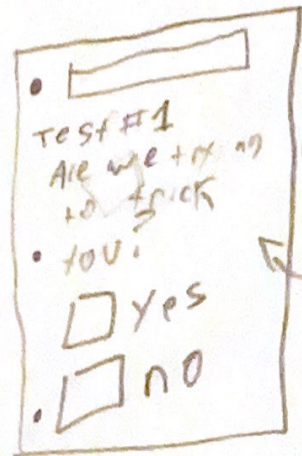 Test #1
Are we trying
to trick
you?
yes
no